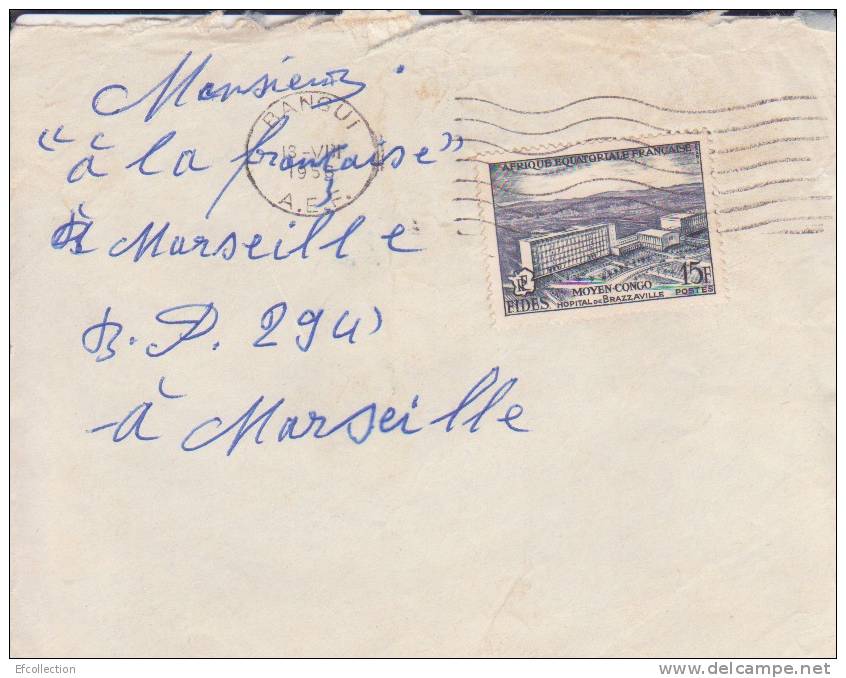 Monsieur
"à la française"
à Marseille
B.P. 294
à Marseille
BANGUI
18-VIII
A.E.F.
AFRIQUE EQUATORIALE FRANCAISE
15F
MOYEN-CONGO
FIDES HOPITAL DE BRAZZAVILLE POSTES
RF
Efcollection
delcampe.net